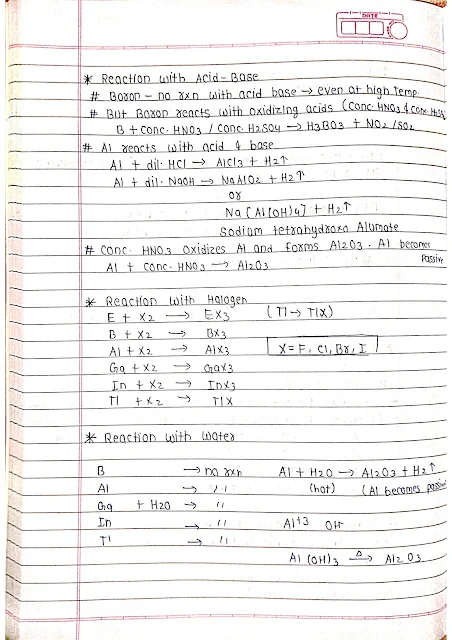 DATE
* Reaction with Acid-Base
# Boron - no rxn with acid base → even at high temp.
# But Boron reacts with oxidizing acids (conc. HNO3 & conc. H2SO4
B + conc. HNO3 / conc. H2SO4 → H3BO3 + NO2 / SO2
# Al reacts with acid & base
Al + dil. HCl → AlCl3 + H2↑
Al + dil. NaOH → NaAlO2 + H2↑
or
Na [Al(OH)4] + H2↑
Sodium tetrahydroxo Alumate
# Conc. HNO3 oxidizes Al and forms Al2O3. Al becomes
passive
Al + conc. HNO3 → Al2O3
* Reaction with Halogen
E + X2 → EX3 (Tl → TlX)
B + X2 → BX3
Al + X2 → AlX3 X = F, Cl, Br, I
Ga + X2 → GaX3
In + X2 → InX3
Tl + X2 → TlX
* Reaction with Water
B → no rxn Al + H2O → Al2O3 + H2↑
Al → " (hot) (Al becomes passive
Ga + H2O → "
In → " Al+3 OH-
Tl → "
Al(OH)3 Δ→ Al2O3